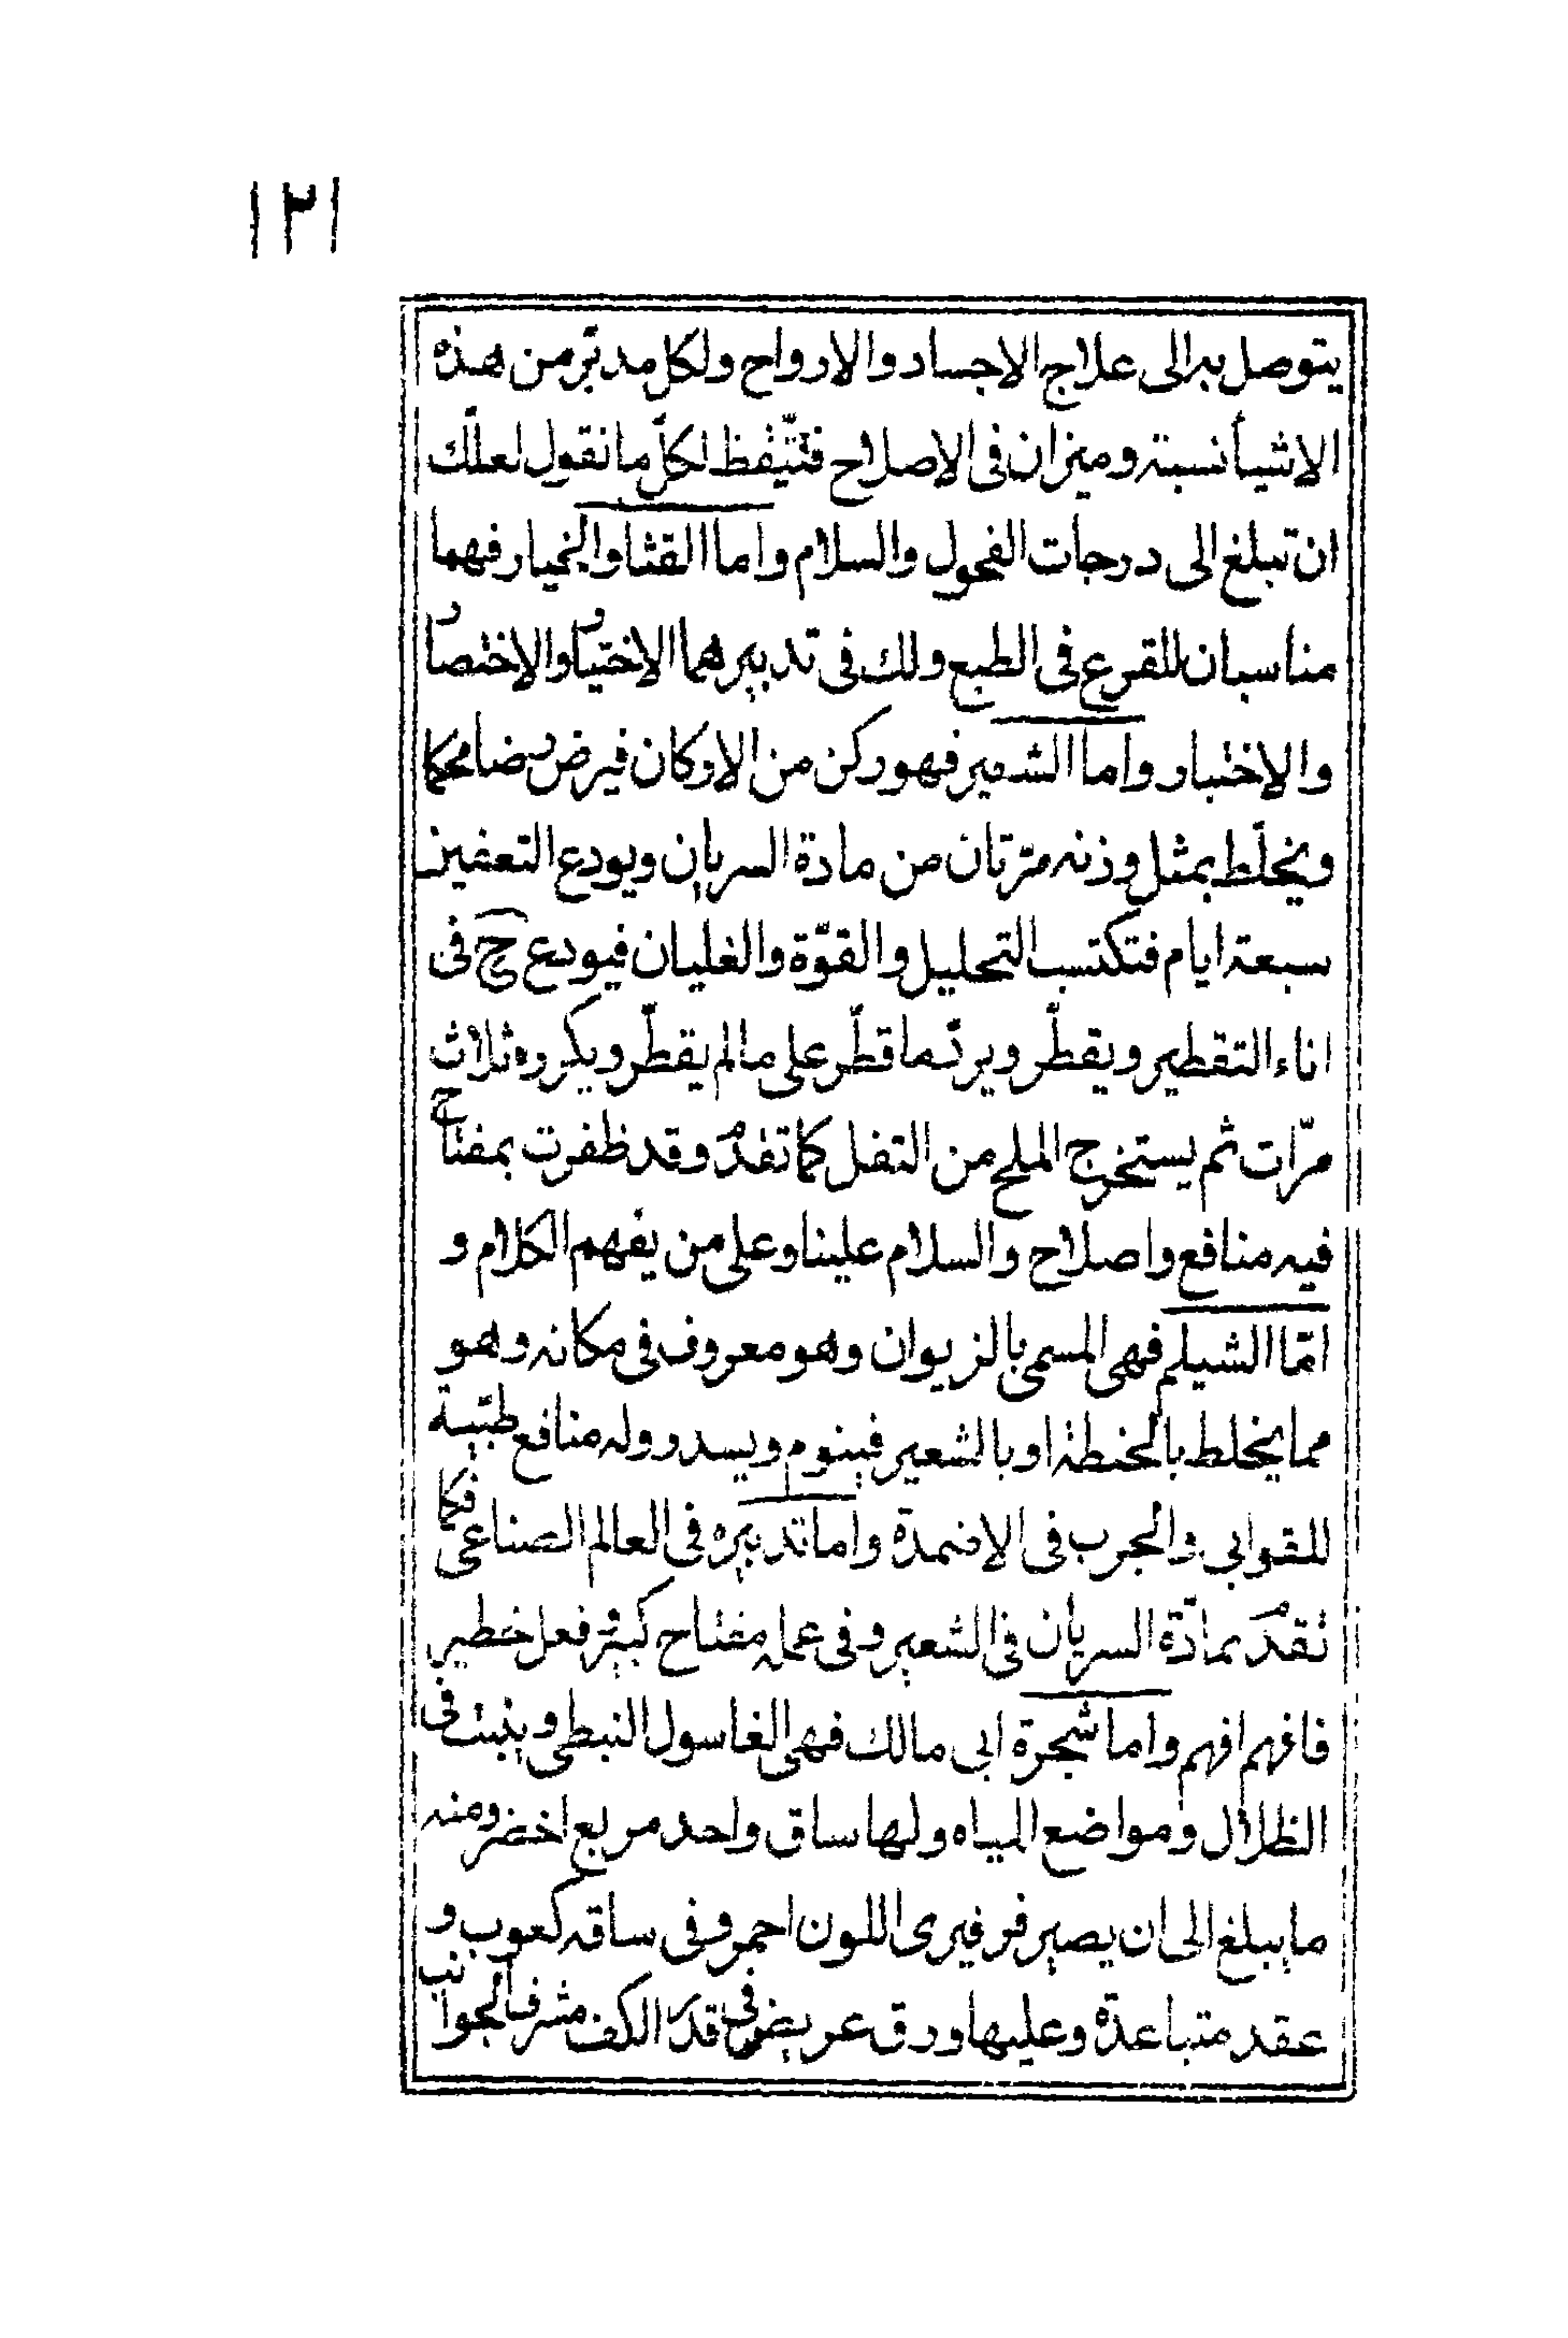 ١٢١
يتوصل به الى علاج الاجساد والارواح ولكل مدبّر من هذه
الاشيأ نسبة وميزان فى الاصلاح فتيّقظ لكلّ ما نقول لعلّك
ان تبلغ الى درجات الفحول والسلام واما القثا والخيار فهما
مناسبان للقرع فى الطبع ولك فى تدبيرهما الاختيار والاختصار
والاختبار واما الشعير فهو ركن من الاركان فيرض رضا محكما
ويخلّط بمثل وزنه مرّتان من مادة السريان ويودع التعفين
سبعة ايام فتكتسب التحليل والقوّة والغليان فيودع ح فى
اناء التقطير ويقطّر ويردّ ما قطّر على ما لم يقطّر ويكرره ثلاث
مرّات ثم يستخرج الملح من التفل كما تقدم وقد ظفرت بمفتاح
فيه منافع واصلاح والسلام علينا وعلى من يفهم الكلام و
امّا الشيلم فهى المسمى بالزيوان وهو معروف فى مكانه وهو
مما يخلط بالحنطة او بالشعير فينوم ويسدر وله منافع طبّيبة
للقوابى والجرب فى الاضمدة واما تدبيره فى العالم الصناعى فكما
تقدم بمادّة السريان فى الشعير وفى عمله مفتاح كبير فعل خطير
فافهم افهم واما شجرة ابى مالك فهى الغاسول النبطى وينبت فى
الظلال ومواضع المياه ولها ساق واحد مربع اخضر ومنه
ما يبلغ الى ان يصير فرفيرى اللون احمر وفى ساقه كعوب و
عقد متباعدة وعليها ورق عريض فى قدر الكف مشرف الجوانب